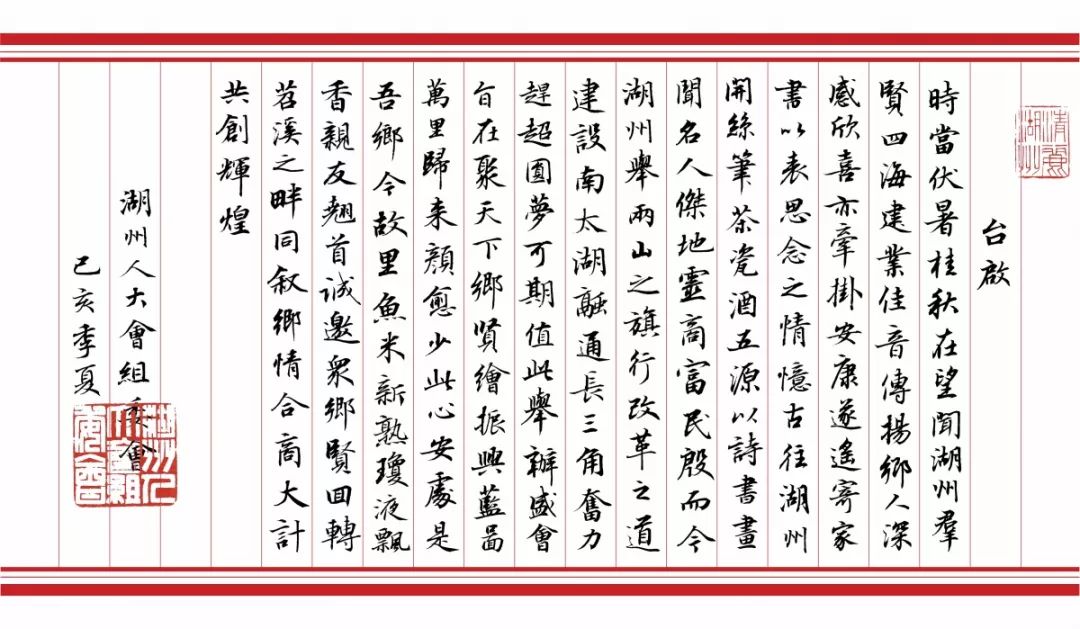 清麗
湖州
台啟
時當伏暑桂秋在望聞湖州羣
賢四海建業佳音傳揚鄉人深
感欣喜亦牽掛安康遂遙寄家
書以表思念之情憶古往湖州
開絲筆茶瓷酒五源以詩書畫
聞名人傑地靈高富民殷而今
湖州舉兩山之旗行改革之道
建設南太湖融通長三角奮力
趕超圓夢可期值此舉辦盛會
旨在聚天下鄉賢繪振興藍啚
萬里歸来顏愈少此心安處是
吾鄉今故里魚米新熟瓊液飄
香親友翹首誠邀衆鄉賢回轉
苕溪之畔同叙鄉情合商大計
共創輝煌
湖州人大會組委會
己亥季夏
湖州人
大會組
委會